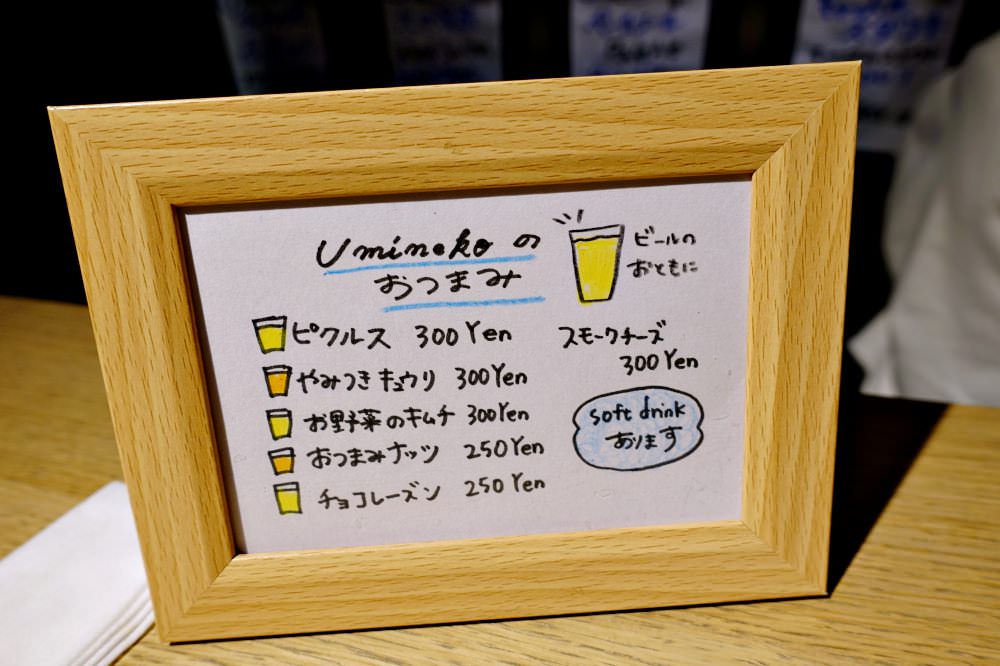 Umineko の
おつまみ
ビールの
おともに
ピクルス 300 Yen
やみつきキュウリ 300 Yen
お野菜のキムチ 300 Yen
おつまみナッツ 250 Yen
チョコレーズン 250 Yen
スモークチーズ
300 Yen
soft drink
あります